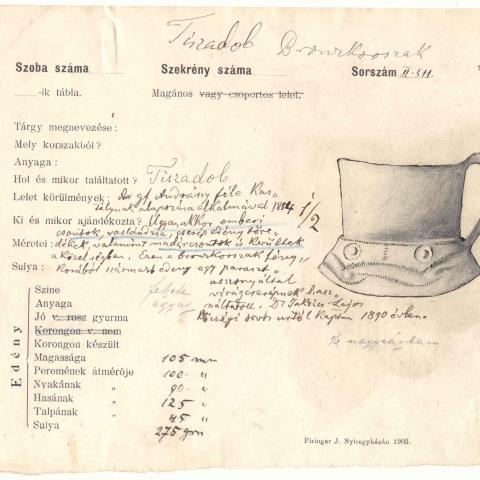 Tiszadob Bronzkorszak
Szoba száma Szekrény száma Sorszám II. 311
-ik tábla. Magános vagy csoportos lelet.
Tárgy megnevezése :
Mely korszakból?
Anyaga :
Hol és mikor találtatott? Tiszadob
Lelet körülmények: Az gf. Andrássy féle Kas„
télynak alapozása alkalmával 1884
Ki és mikor ajándékozta? Ugyanakkor emberi
1/2
csontok, vaslándzsa, cserép edény töre„
Méretei: dékek, valamint madárcsontok is kerültek
a közelségben. Ezen a bronzkorszak fény„
Sulya : korából származó edény egy paraszt
asszonynál
Edény
Szine fekete virágcserépnek hasz„
Anyaga agyag náltatott. Dr Takács Lajos
Jó v. rosz gyurma községi orvos urtól kaptam 1890 évben.
Korongon v. nem
Korongon készült ½ nagyságban
Magassága 105 mm
Peremének átmérője 100 - „
Nyakának „ 90 - „
Hasának „ 125 „
Talpának „ 45 „
Sulya 275 grm
Piringer J. Nyiregyházán 1903.